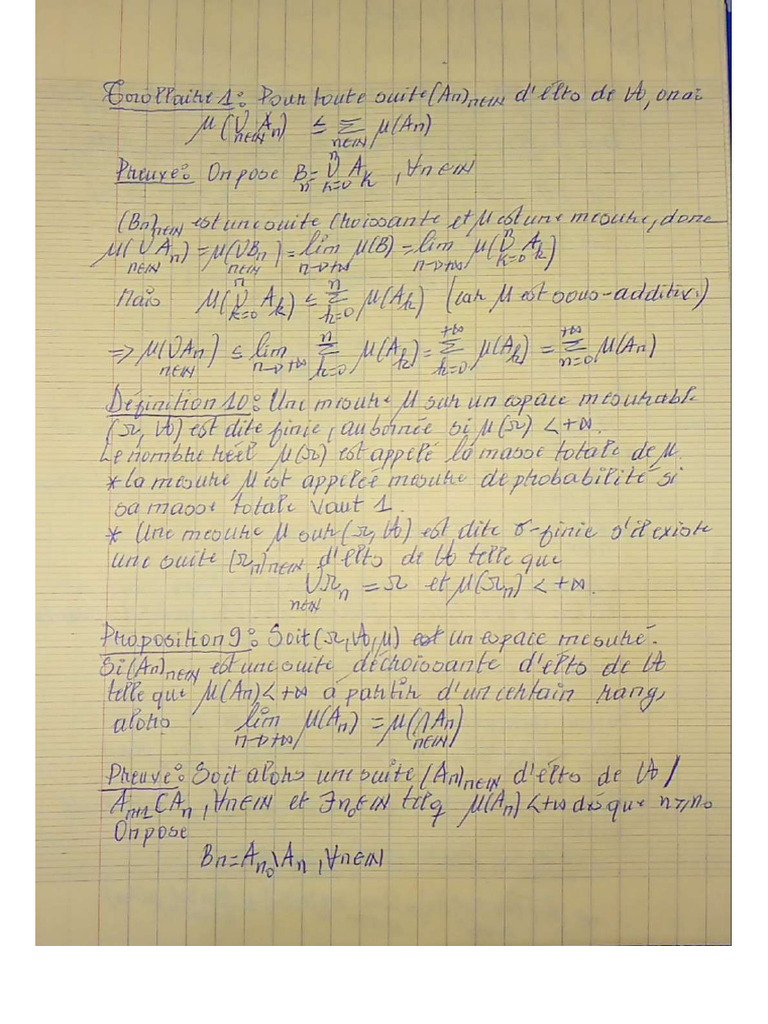 Corollaire 1: Pour toute suite (An)n∈ℕ d'élts de 𝒜, on a:
μ(∪n∈ℕ An) ≤ ∑n∈ℕ μ(An)
Preuve: On pose Bn = ∪k=0^n Ak, ∀n∈ℕ
(Bn)n∈ℕ est une suite croissante et μ est une mesure, donc
μ(∪n∈ℕ An) = μ(∪n∈ℕ Bn) = lim n→+∞ μ(B) = lim n→+∞ μ(∪k=0^n Ak)
Mais μ(∪k=0^n Ak) ≤ ∑k=0^n μ(Ak) (car μ est sous-additive)
⇒ μ(∪n∈ℕ An) ≤ lim n→+∞ ∑k=0^n μ(Ak) = ∑k=0^+∞ μ(Ak) = ∑n=0^+∞ μ(An)
Définition 10: Une mesure μ sur un espace mesurable
(Ω, 𝒜) est dite finie, au bornée si μ(Ω) < +∞.
Le nombre réel μ(Ω) est appelé la masse totale de μ.
* La mesure μ est appelée mesure de probabilité si
sa masse totale vaut 1.
* Une mesure μ sur (Ω, 𝒜) est dite σ-finie s'il existe
une suite (Ωn)n∈ℕ d'élts de 𝒜 telle que
∪n∈ℕ Ωn = Ω et μ(Ωn) < +∞.
Proposition 9: Soit (Ω, 𝒜, μ) est un espace mesuré.
Si (An)n∈ℕ est une suite décroissante d'élts de 𝒜
telle que μ(An) < +∞ à partir d'un certain rang,
alors lim n→+∞ μ(An) = μ(∩n∈ℕ An)
Preuve: Soit alors une suite (An)n∈ℕ d'élts de 𝒜 /
An+1 ⊂ An, ∀n∈ℕ et ∃n0∈ℕ telq μ(An) < +∞ dès que n ≥ n0
On pose
Bn = An0 \ An, ∀n∈ℕ